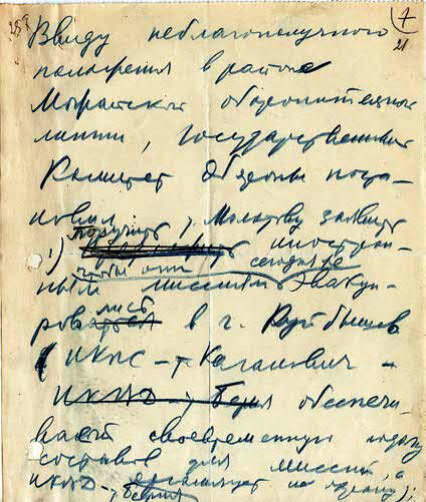 28э 7
21
Ввиду неблагополучного
положения в районе
Можайской оборонительной
линии, Государственный
Комитет Обороны поста-
новил
поручить т. Молотову заявить
1) иностран-
чтобы они сегодня же
ным миссиям эвакуи-
ровались в г. Куйбышев
(НКПС – т. Каганович –
НКВД – т. Берия обеспечи-
вает своевременную подачу
составов для миссий, а
НКВД – организует их охрану);
т. Берия